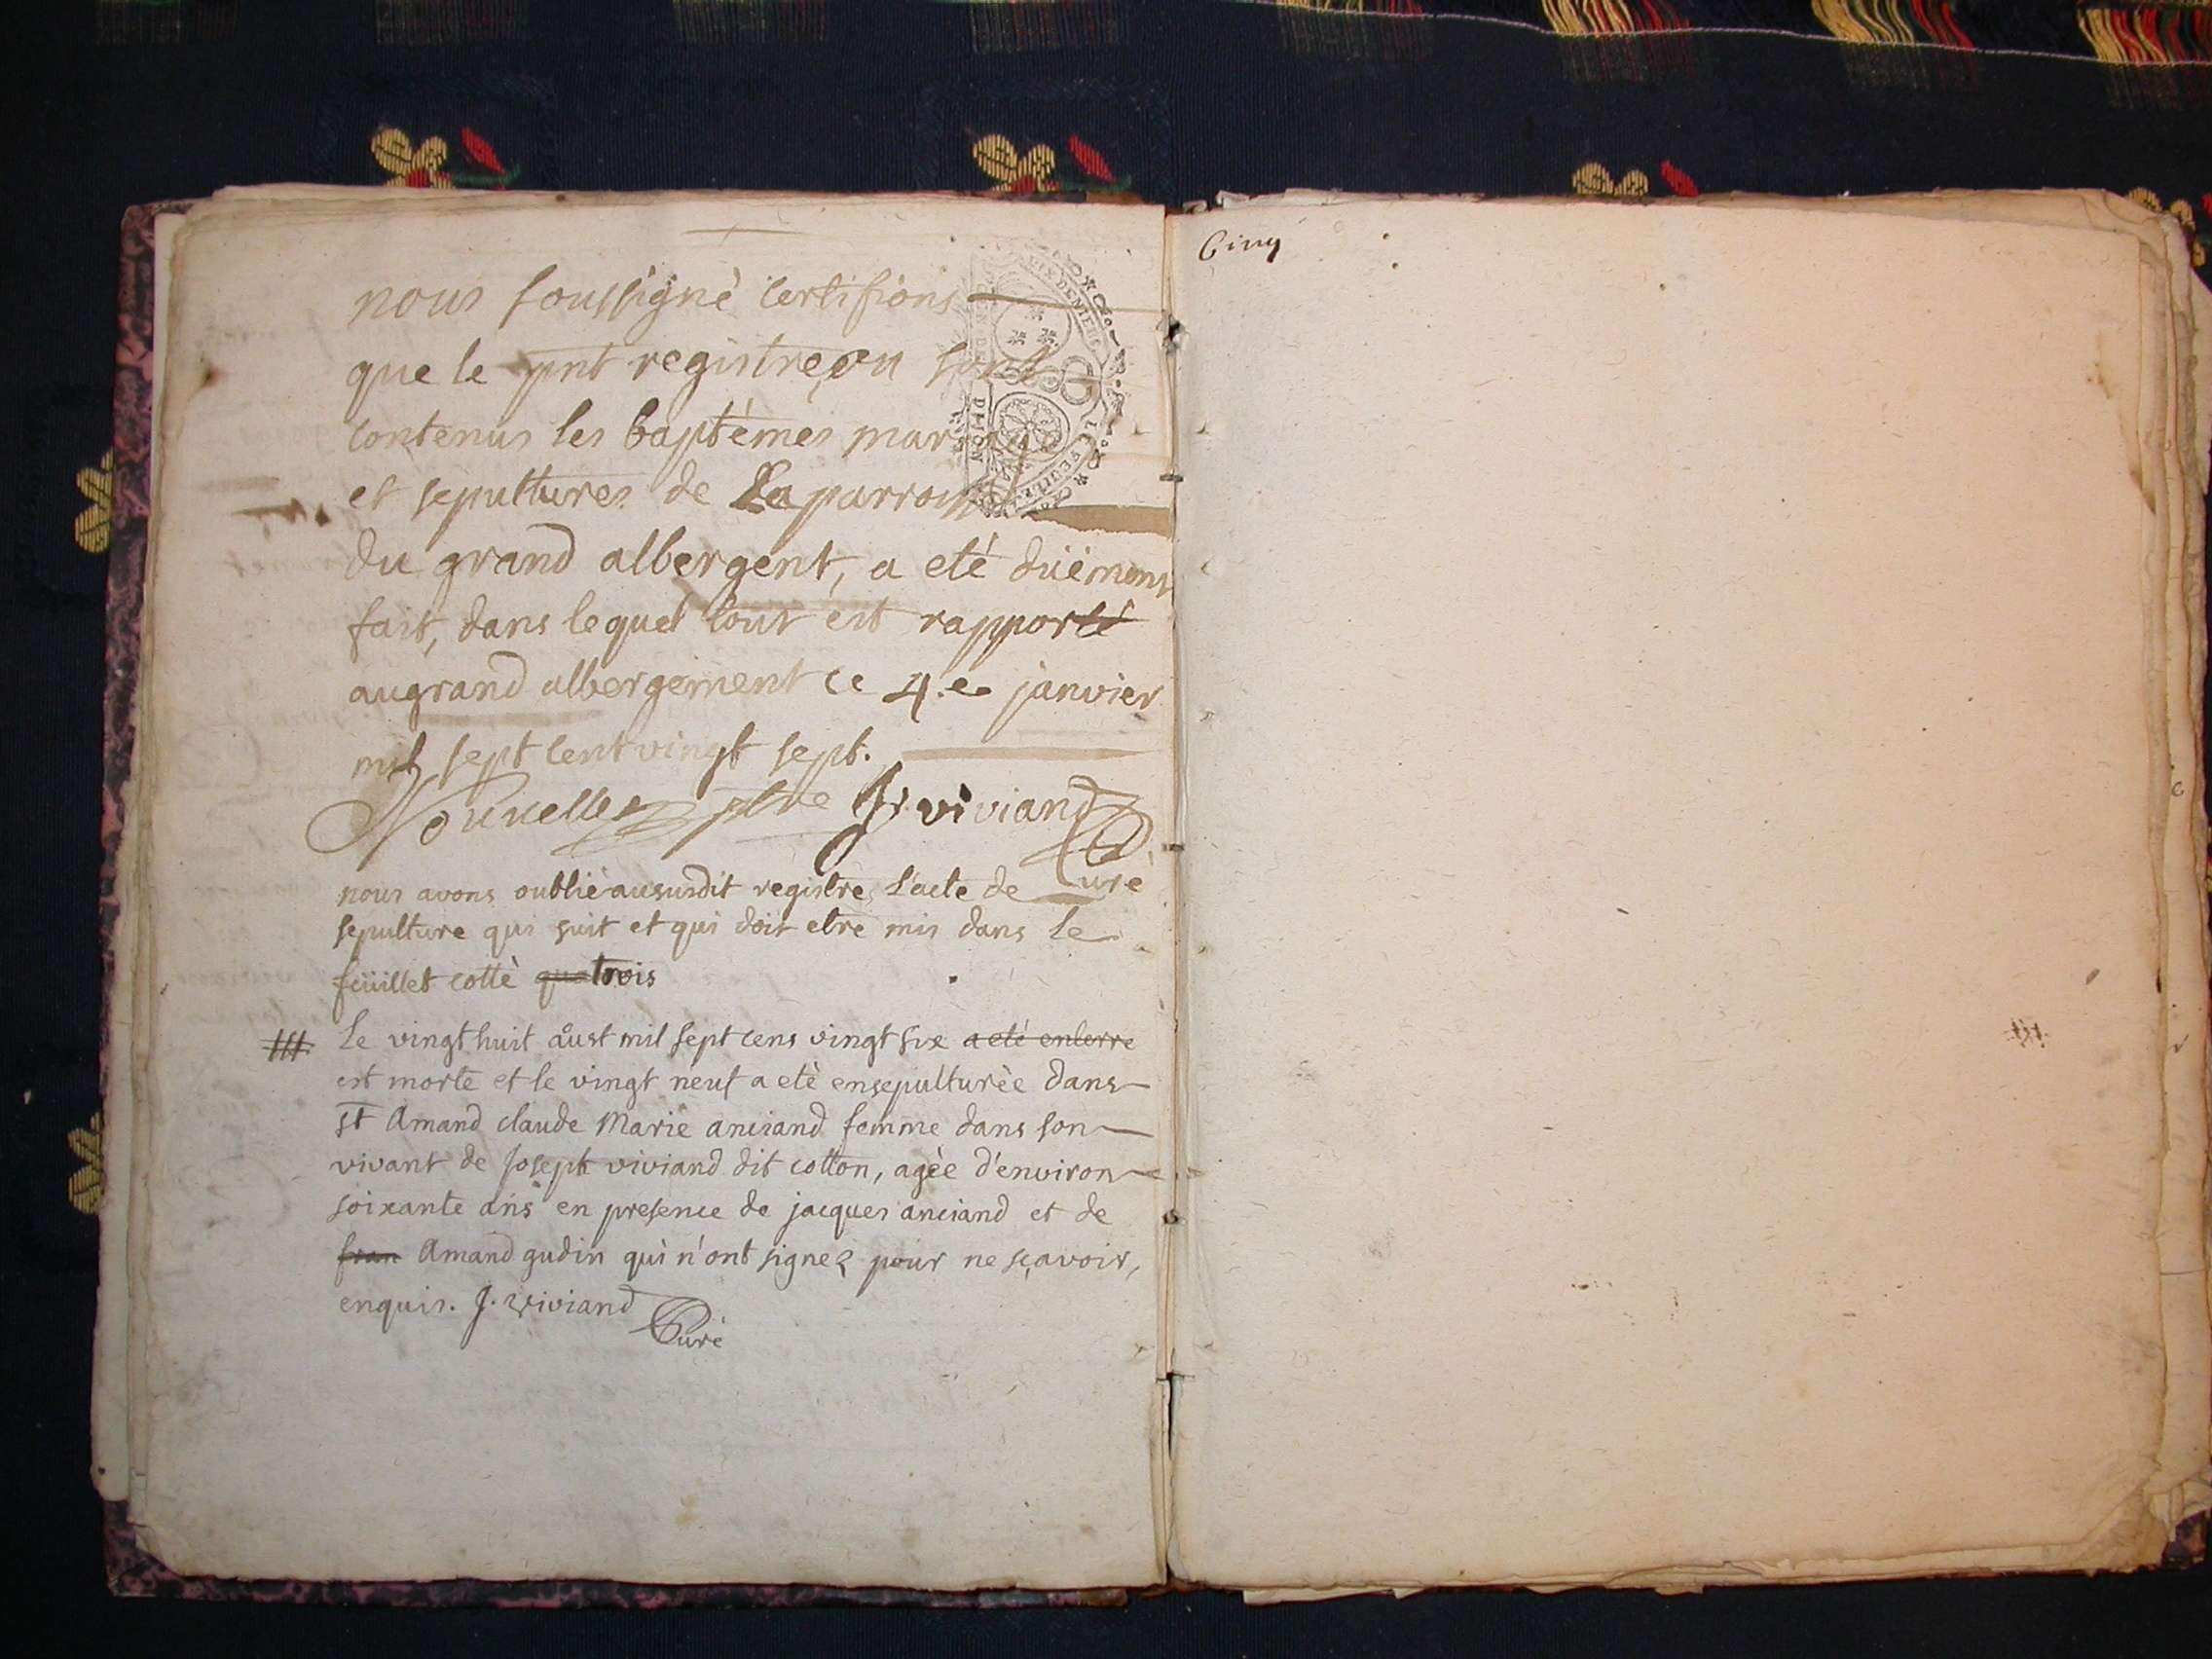 nous soussignè certifions
que le pnt registre, ou sont
contenus les baptêmes mariages
et sepultures de La parroisse
du grand albergent, a eté düëment
fait, dans lequel tout est rapporté
au grand albergement ce 4.e janvier
mil sept cent vingt sept.
Nouuellet ptre J. viviand
Curè
nous avons oubliè au susdit registre, l'acte de
sepulture qui suit et qui doit etre mis dans le
feüillet cottè qua trois
Le vingt huit aust mil sept cens vingt six a eté enterre
est morte et le vingt neuf a etè ensepulturèe dans
st Amand claude Marie anciand femme dans son
vivant de Joseph viviand dit cotton, agèe d'environ
soixante ans en presence de jacques anciand et de
fran Amand gudin qui n'ont signez pour ne sçavoir,
enquis. J. viviand
Curè
Cinq